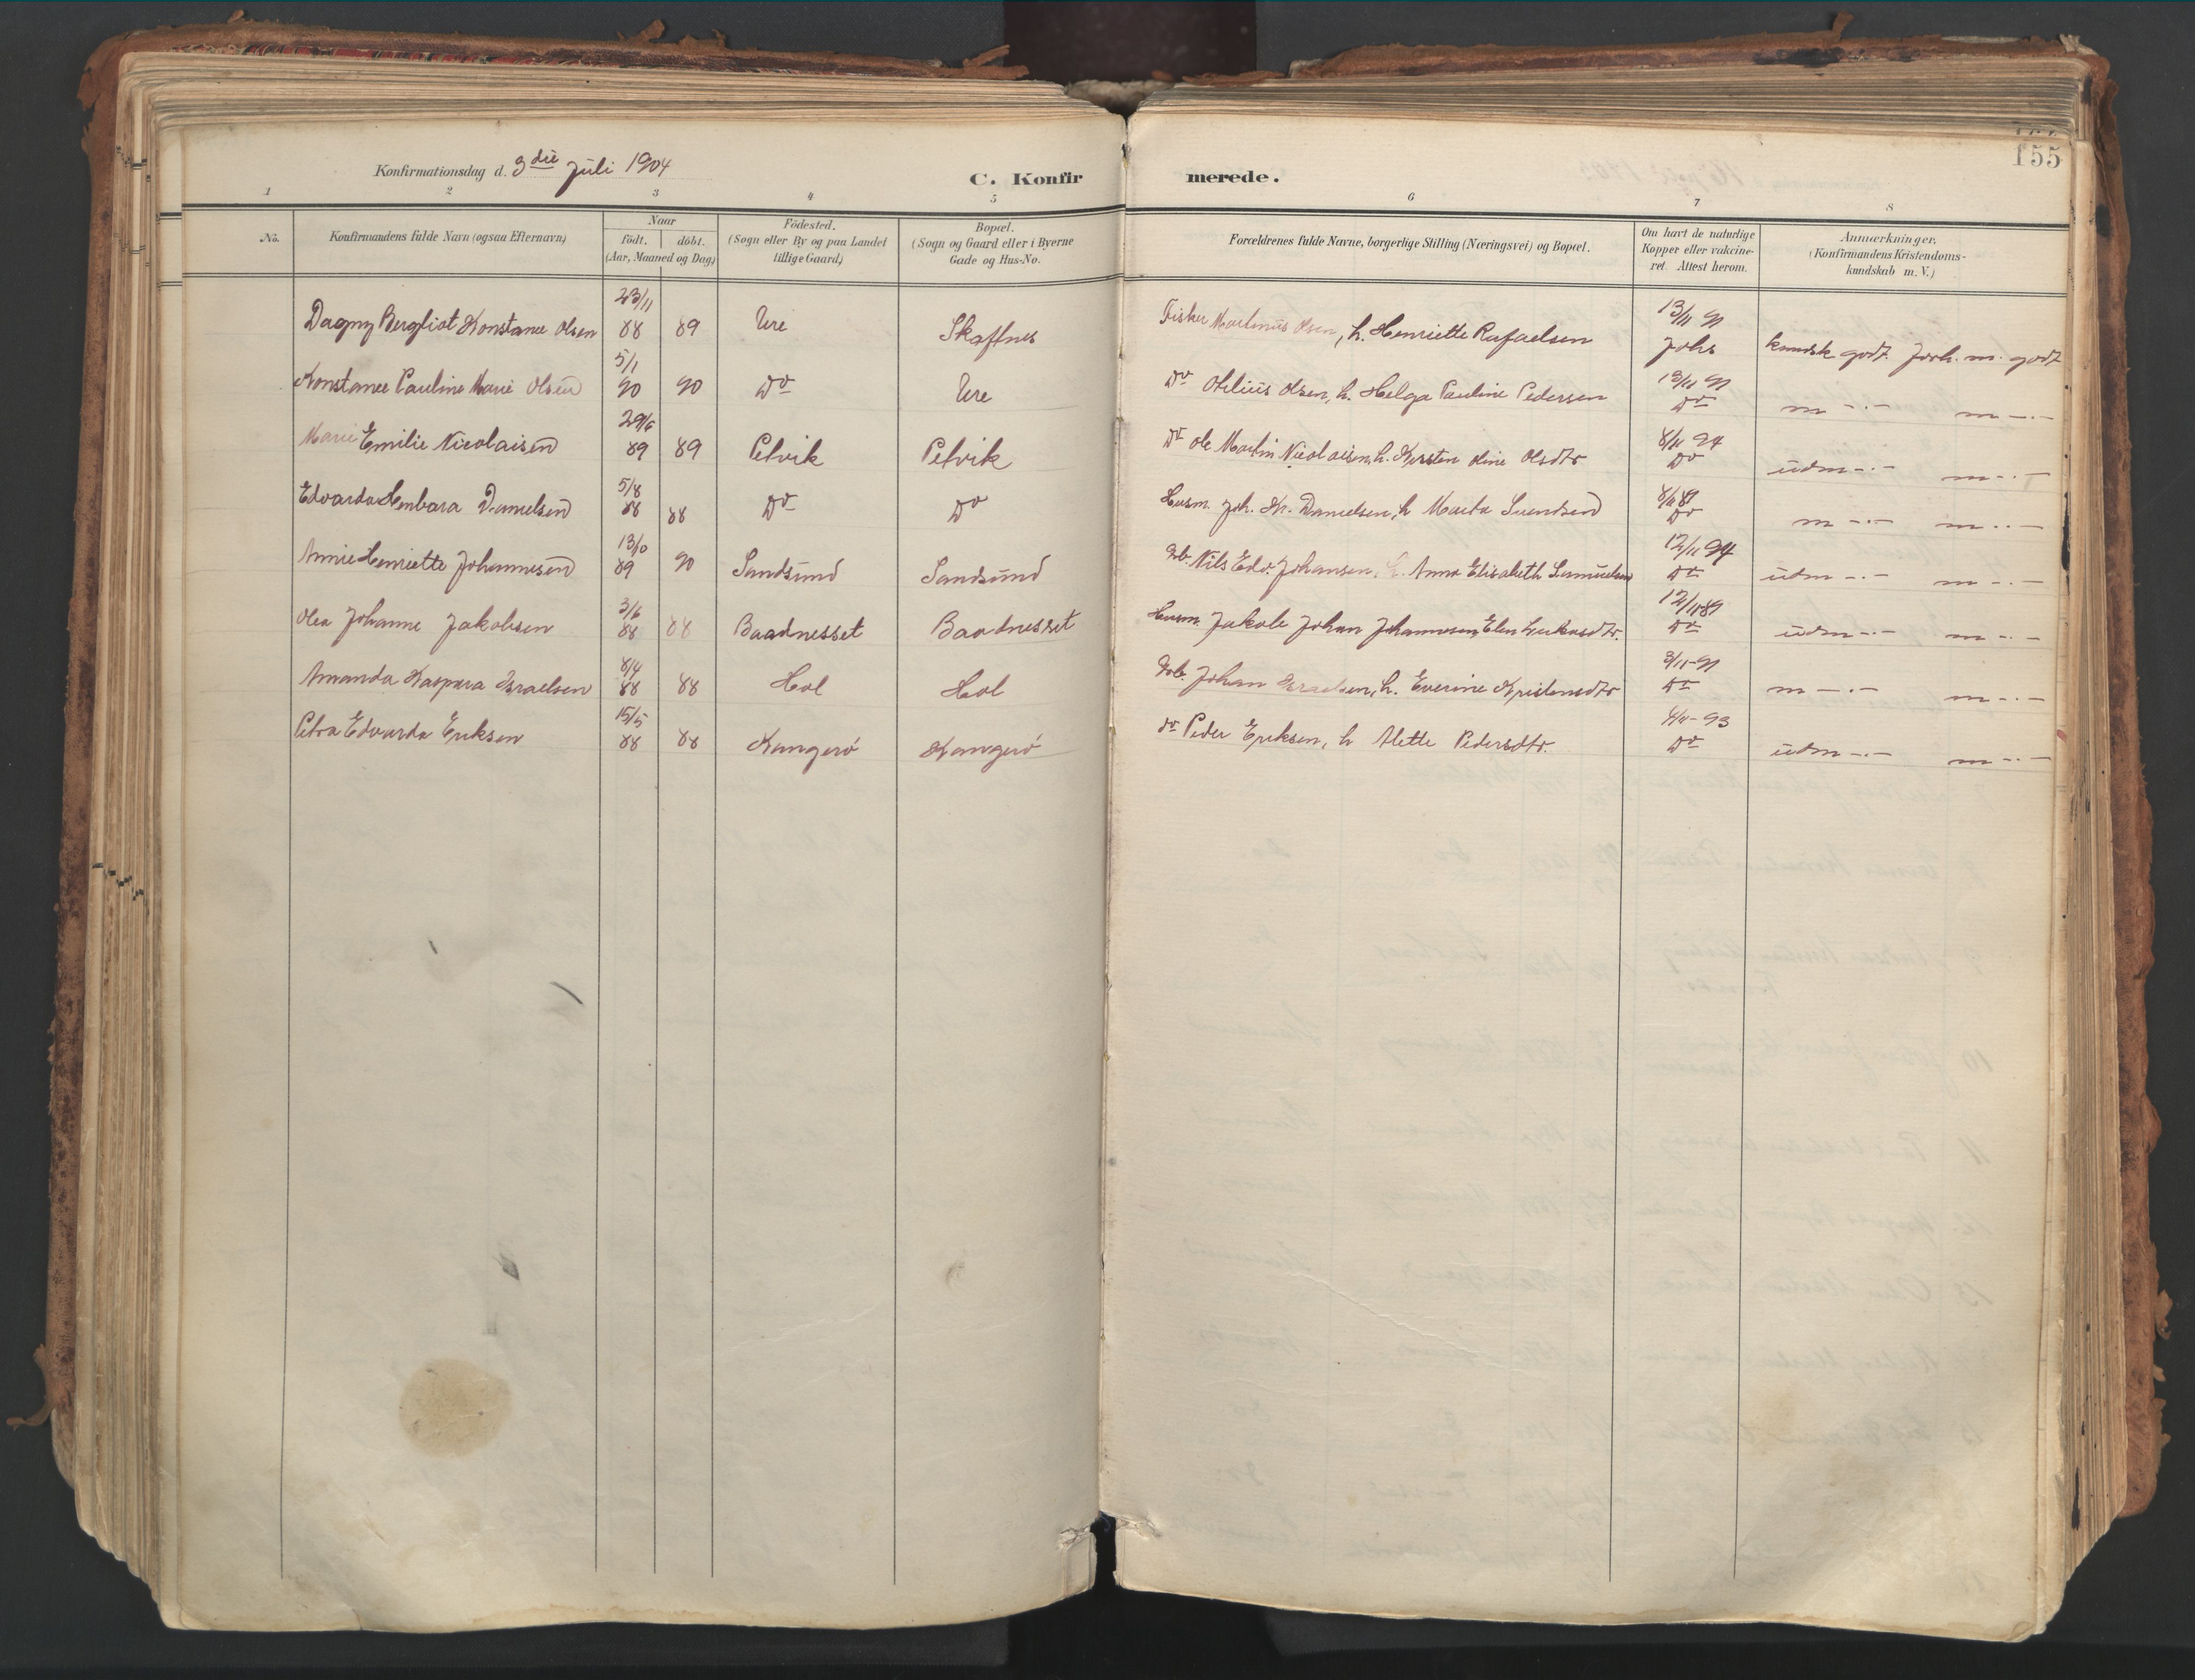 155
Konfirmationsdag d. 3die Juli 1904
C. Konfirmerede.
1 2 3 4 5 6 7 8
No. Konfirmandens fulde Navn (ogsaa Efternavn) Naar födt. döbt. (Aar, Maaned og Dag) Födested. (Sogn eller By og paa Landet tillige Gaard) Bopæl. (Sogn og Gaard eller i Byerne Gade og Hus-No. Forældrenes fulde Navne, borgerlige Stilling (Næringsvei) og Bopæl. Om havt de naturlige Kopper eller vakcineret. Attest herom. Anmærkninger. (Konfirmandens Kristendomskundskab m. V.)
Dagny Bergliot Konstance Olsen 23/11 88 89 Ure Skaftnes Fisker Martinus Olsen, h. Henriette Rafaelsen 13/11 91 Johs kundsk godt. Forh. m. godt
Konstance Pauline Marie Olsen 5/1 90 90 Do Ure Do Otelius Olsen, h. Helga Pauline Pedersen 13/11 91 Do m -.- m -.-
Marie Emilie Nicolaisen 29/6 89 89 Petvik Petvik Do Ole Martin Nicolaisen, h. Kirsten Oline Olsdtr 8/11 94 Do udm -.- m -.-
Edvarda Danielsen 5/8 88 88 Do Do Husm. Joh. Danielsen, h Marta Svendsen Do m -.- m -.-
Annie Henriette Johannesen 89 90 Sandsund Sandsund Nils Edv. Johansen, h. Anna Elisabeth Samuelsen 12/11 94 Do udm -.- m -.-
Olea Johanne Jakobsen 3/6 88 88 Baadnesset Baadnesset Husm. Jakob Johan Johannesen, Elen 12/11 89 Do udm -.- m -.-
Amanda Kaspara Israelsen 8/4 88 88 Hol Hol Johan Israelsen, h. Everine Kristensdtr 3/11-91 Do m -.- m -.-
Petra Edvarda Eriksen 15/5 88 88 Kangerö Kangerö do Peder Eriksen, h Alette Pedersdtr. 93 Do udm -.- m -.-